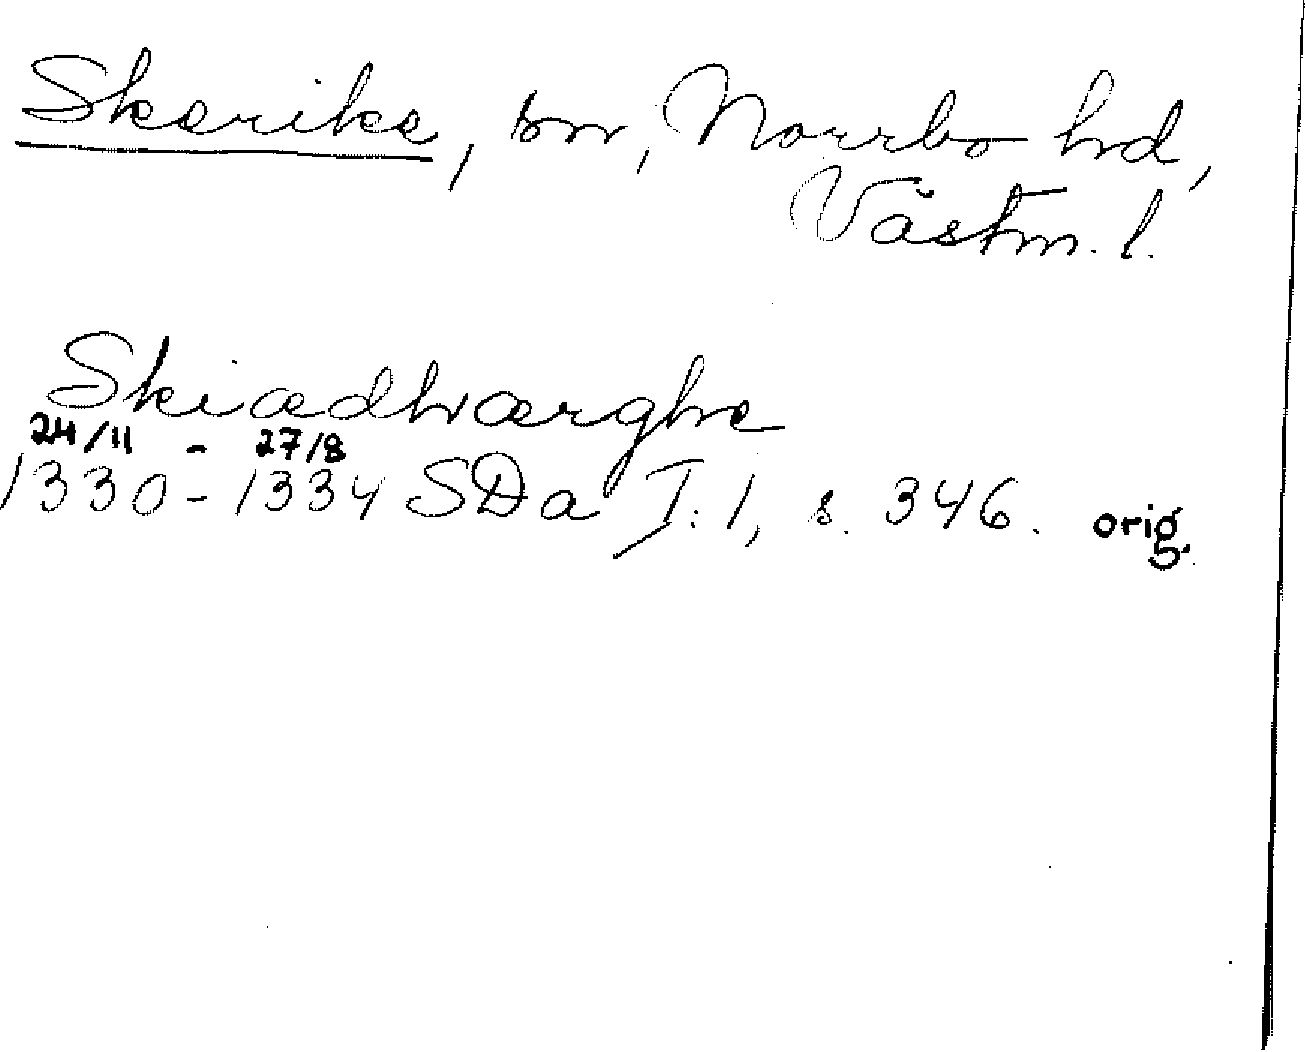 Skerike, sn, Norrbo hd,
Västm. l.
Skiædhwærghe
24/11 - 27/8
1330-1334 SDa I:1, s. 346. orig.